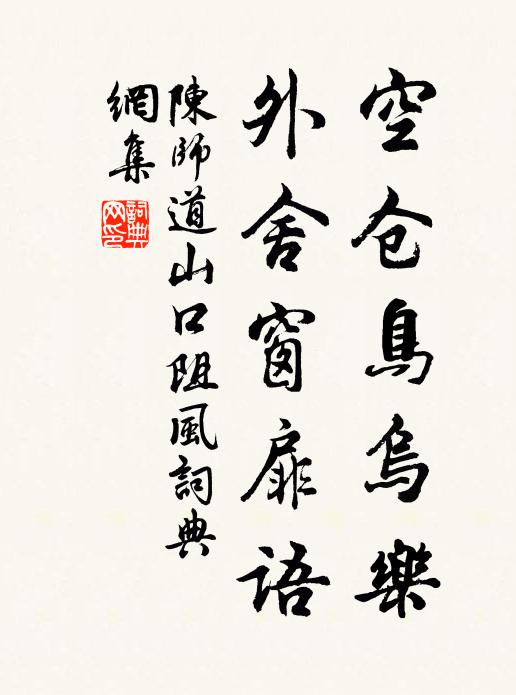 空仓鳥烏樂
外舍窗扉語
陳師道山口阻風詞典
網集
詞典網印